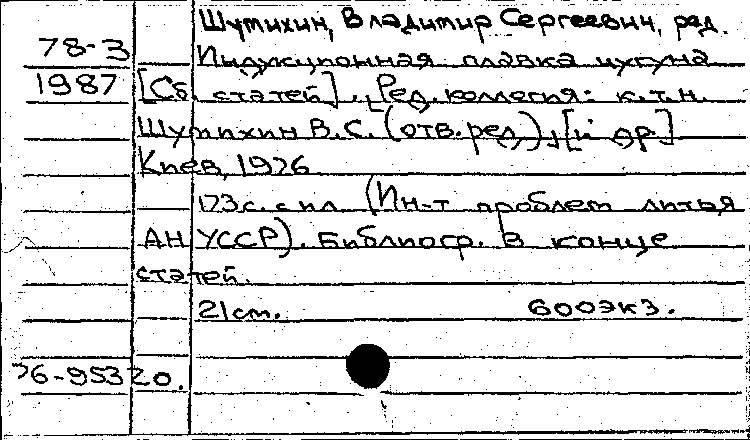 Шутихин, Владимир Сергеевич, ред.
78-3 Индукционная плавка чугуна
1987 [Сб. статей]. Ред. коллегия: к.т.н.
Шутихин В.С. (отв. ред.), [и др.]
Киев, 1976
173 с. с ил. (Ин-т проблем литья
АН УССР). Библиогр. в конце
статей.
21 см. 600 экз.
76-95320.